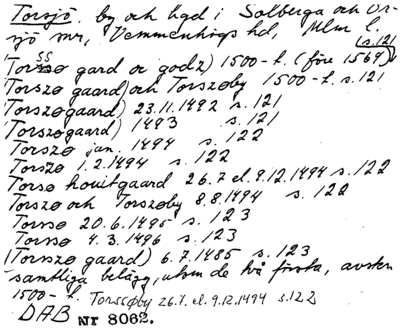 Torsjö, by och hgd i Solberga och Ör-
sjö snr, Vemmenhögs hd, Mlm l.
s.121
(Torssø gard oc godz) 1500-t. (före 1569)
(Torszø gaard) och Torszøby 1500-t. s.121
(Torszøgaard) 23.11.1492 s.121
(Torszøgaard) 1493 s.121
Torszø jan. 1494 s.122
Torszø 1.2.1494 s.122
Torsø houitgaard 26.7 el. 9.12.1494 s.122
Torszø och Torszøby 8.8.1494 s.122
Torssø 20.6.1495 s.123
Torssø 4.3.1496 s.123
(Torszø gaard) 6.7.1485 s.123
samtliga belägg, utom de två första, avskr.
1500-t. Torssøby 26.7. el. 9.12.1494 s.122
DAB Nr 8062.